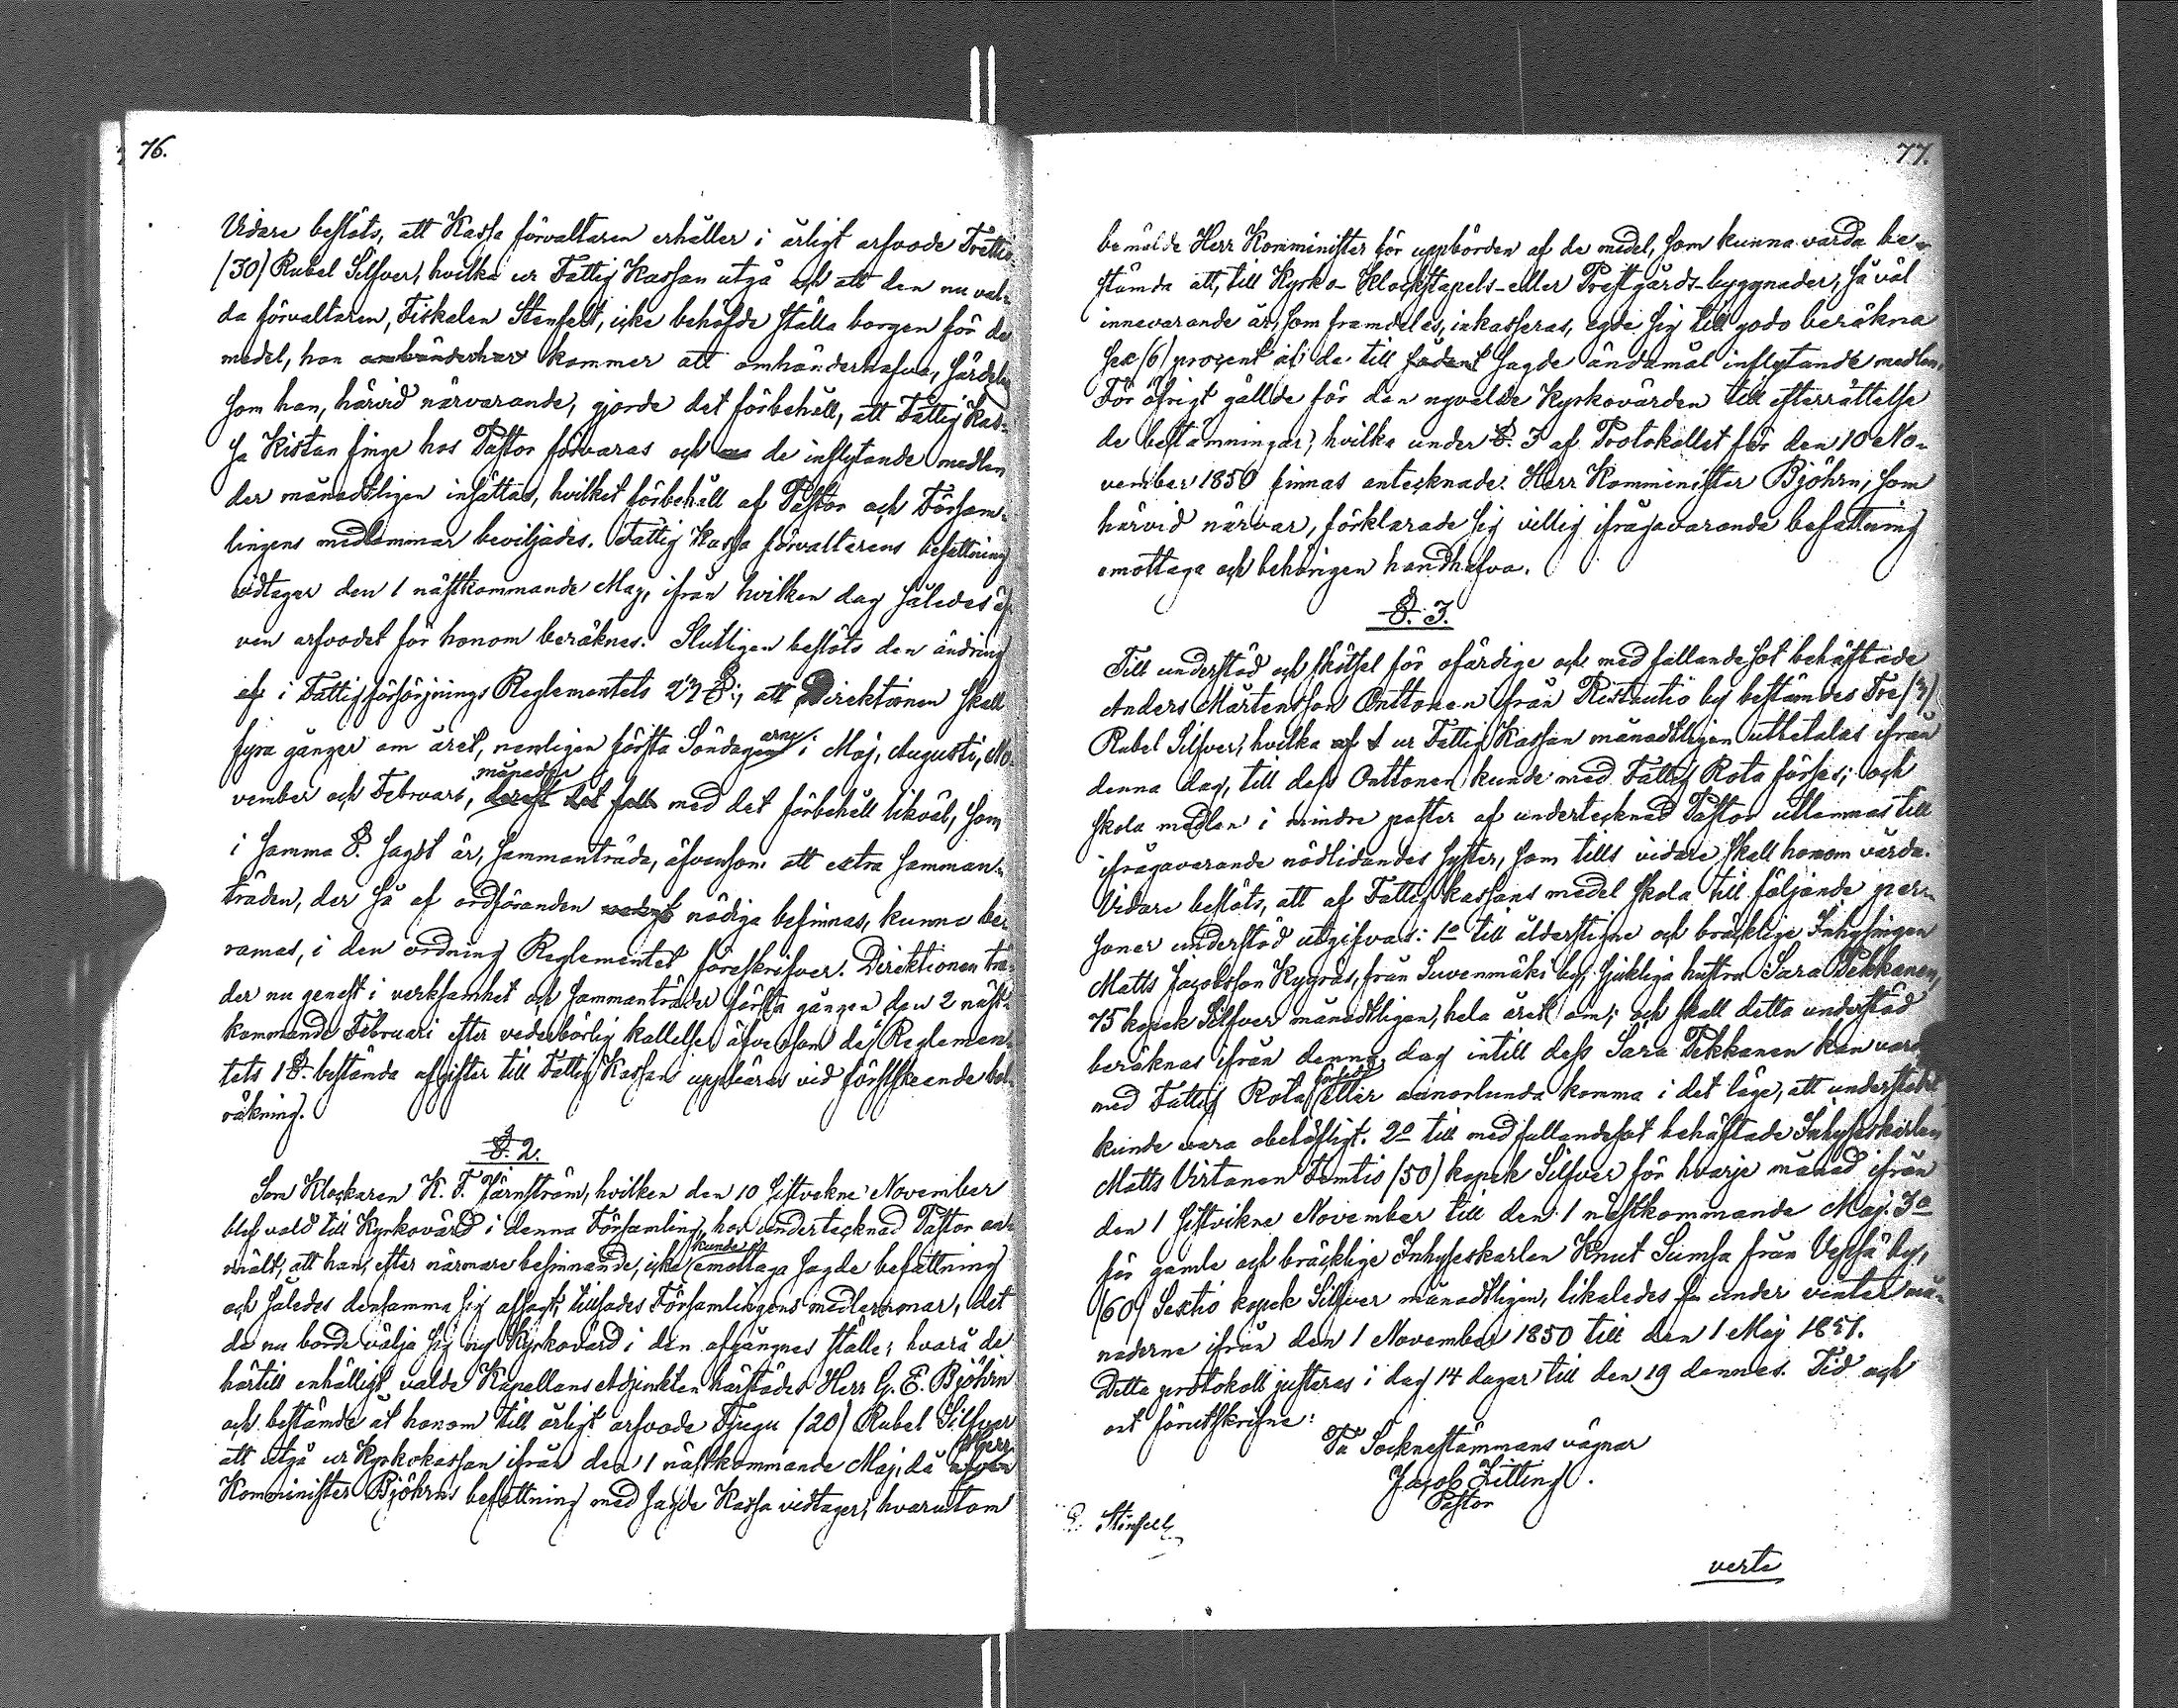 76.
Vidare beslöts, att Kassa förvaltaren erhåller i årligt arfvode Trettio
(30) Rubel Silfver, hvilka ur Fattig Kassan utgå och att den nu val-
da förvaltaren, Fiskalen Stenfelt, icke behöfde ställa borgen för de
medel, han omhänderhar kommer att omhänderhafva, särdeles
som han, härvid närvarande, gjorde det förbehåll, att Fattig Kas-
sa Kistan finge hos Pastor förvaras och de inflytande medlen
der månadtligen insättas, hvilket förbehåll af Pastor och Försam-
lingens medlemmar beviljades. Fattig Kassa förvaltarens befattning
vidtager den 1 nästkommande Maj, ifrån hvilken dag således äf-
ven arfvodet för honom beräknes. Slutligen beslöts den ändring
af i Fattigförsörjnings Reglementets 27 §:, att Direktionen skall
fyra gånger om året, nemligen första Söndagen arne i Maj, Augusti, No-
vember och Februari, månader derest det fall med det förbehåll likväl, som
i samma §. sagdt är, sammanträda, äfvensom att extra samman-
träden, der så af ordföranden nödiga befinnas, kunna be-
ramas, i den ordning Reglementet föreskrifver. Direktionen trä-
der nu genast i verksamhet och sammanträder första gången den 2 näst-
kommande Februari efter vederbörlig kallelse äfvensom de i Reglemen-
tets 1 §. bestämda afgifter till Fattig Kassans uppbäras vid förstskeende
räkning.
§. 2.
Som Klockaren K. F. Järnström, hvilken den 10 sistvekne November
blef vald till Kyrkovärd i denna Församling, hos undertecknad Pastor an-
mält, att han, efter närmare besinnande, icke kunde emottaga sagde befattning
och således densamma sig afsagt; tillsades Församlingens medlemmar, det
de nu borde välja sig ny Kyrkovärd i den afgångnes ställe; hvarå de
härtill enhälligt valde Kapellans Adjunkten härstädes Herr G. E. Björhn
och bestämde åt honom till årligt arfvode Tjugu (20) Rubel Silfver
att utgå ur Kyrkokassan ifrån den 1 nästkommande Maj, då Herr
Komminister Björhns befattning med sagde Kassa vidtager; hvarutom
77.
bemälde Herr Komminister för uppbörden af de medel, som kunna varda be-
stämda att, till Kyrko- Klockstapels- eller Prestgårds-byggnader, så väl
innevarande år, som framdeles, inkasseras, egde sig till godo beräkna
sex (6) procent af de till sådant sagde ändamål inflytande medlen.
För öfrigt gällde för den nyvalde Kyrkovärden till efterrättelse
de bestämningar, hvilka under §. 3 af Protokollet för den 10 No-
vember 1850 finnas antecknade. Herr Komminister Björhn, som
härvid närvar, förklarade sig villig ifrågavarande befattning
emottaga och behörigen handhafva.
§. 3.
Till understöd och skötsel för ofärdige och med fallandesot behäftade
Anders Mårtensson Onttonen ifrån Ristautio by bestämdes Tre (3)
Rubel Silfver, hvilka af ur Fattig Kassan månadtligen utbetalas ifrån
denna dag, till dess Onttonen kunde med Fattig Rota förses; och
skola medlen i mindre poster af undertecknad Pastor utlemnas till
ifrågavarande nödlidandes syster, som tills vidare skall honom vårda.
Vidare beslöts, att af Fattig kassans medel skola till följande per-
soner understöd utgifvas: 1o till ålderstigne och bräcklige Inhysingen
Matts Jacobsson Kygräs, från Suvenmäki by, sjukliga hustru Sara Pekkanen,
75 kopek Silfver månadtligen, hela året om; och skall detta understöd
beräknas ifrån denna dag intill dess Sara Pekkanen kan varda
med Fattig Rota försedd eller annorlunda komma i det läge, att understödet
kunde vara obehöfligt. 2o till med fallandesot behäftade Inhyseskarlen
Matts Virtanen Femtio (50) kopek Silfver för hvarje månad ifrån
den 1 sistvikne November till den 1 nästkommande Maj. 3o
för gamle och bräcklige Inhyseskarlen Knut Sumsa från Vessä by,
(60) Sextio kopek Silfver månadtligen, likaledes under vintermå-
naderne ifrån den 1 November 1850 till den 1 Maj 1851.
Detta protokoll justeras i dag 14 dagar till den 19 dennes. Tid och
ort förutskrifne:
På Socknestämmans vägnar
Jacob Zitting.
Pastor
Stenfelt
verte